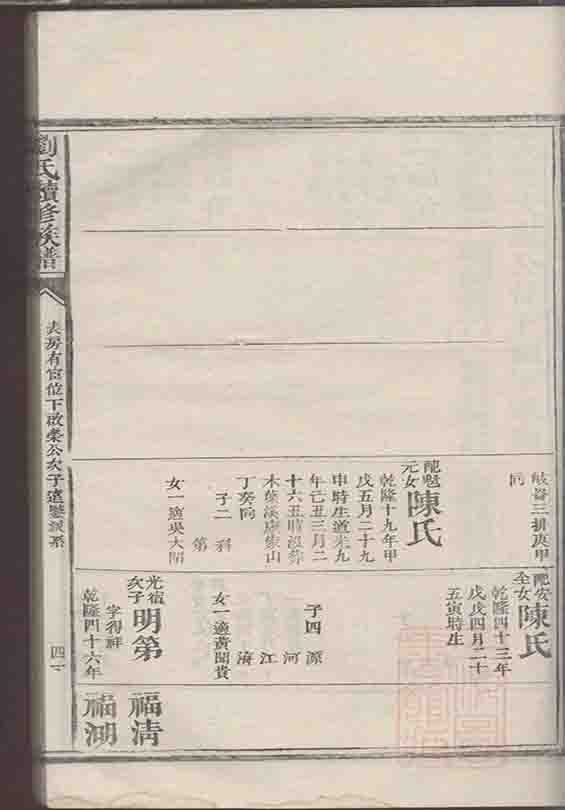 岐沓三排庚甲
向
配魁
元女
陳氏
乾隆十九年甲
戌五月二十九
申時生道光九
年己丑三月二
十六丑時沒葬
木葉溪屋象山
丁癸向
子二 科
第
女一適吳大
配安
全女
陳氏
乾隆四十三年
戊戌四月二十
五寅時生
子四 源
河
江
海
女一適黃聞貴
光宿
次子
明第
字得祥
乾隆四十六年
福清
福湖
劉氏續修族譜
房有官位下啟榮公次子遠鑒派系
四十